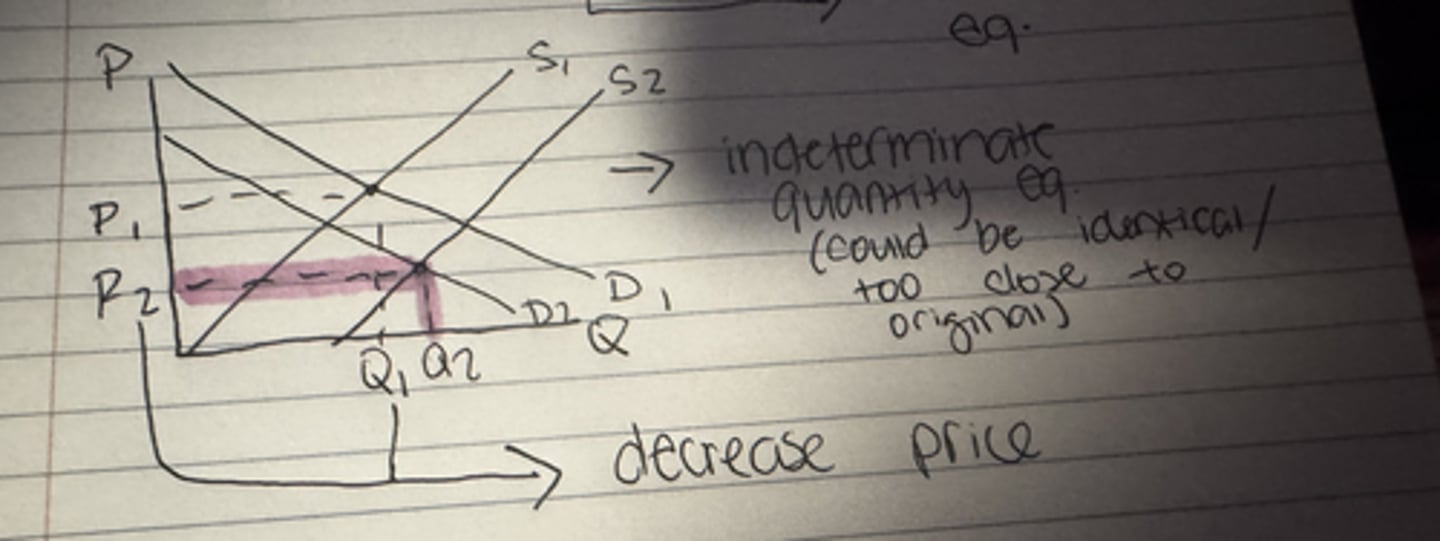 eq.
P
S1
S2
→ indeterminate
quantity eq.
(could be identical/
too close to
original)
P1
P2
D1
D2
Q
Q1 Q2
decrease price